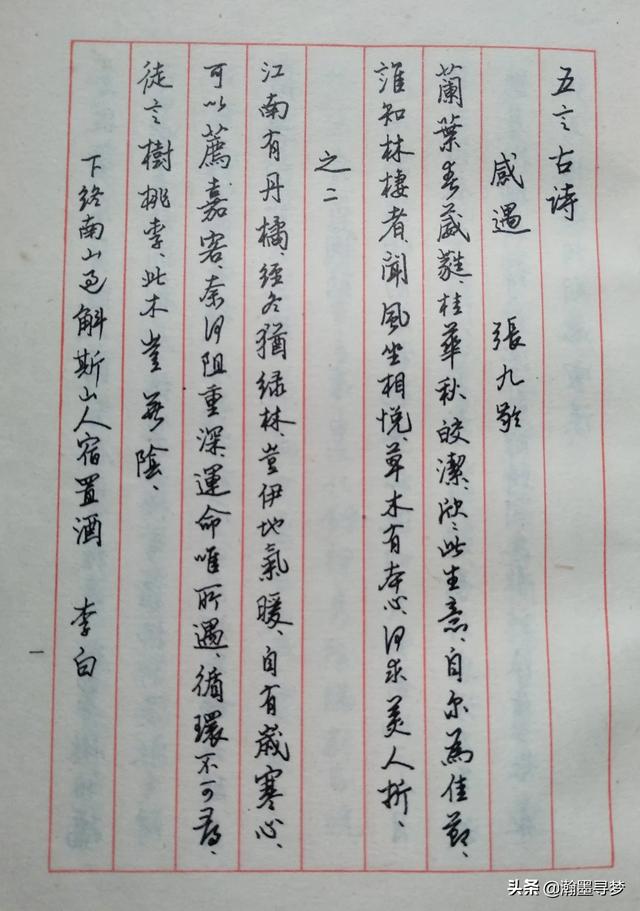 五言古诗
感遇 張九齡
蘭葉春葳蕤、桂華秋皎潔、欣〻此生意、自尔為佳節、
誰知林棲者、聞風坐相悦、草木有本心、何求美人折、
之二
江南有丹橘、經冬猶绿林、豈伊地氣暖、自有歲寒心、
可以薦嘉客、奈何阻重深、運命唯所遇、循環不可尋、
徒言樹桃李、此木豈無陰、
下终南山过斛斯山人宿置酒 李白
一
头条 @瀚墨寻梦